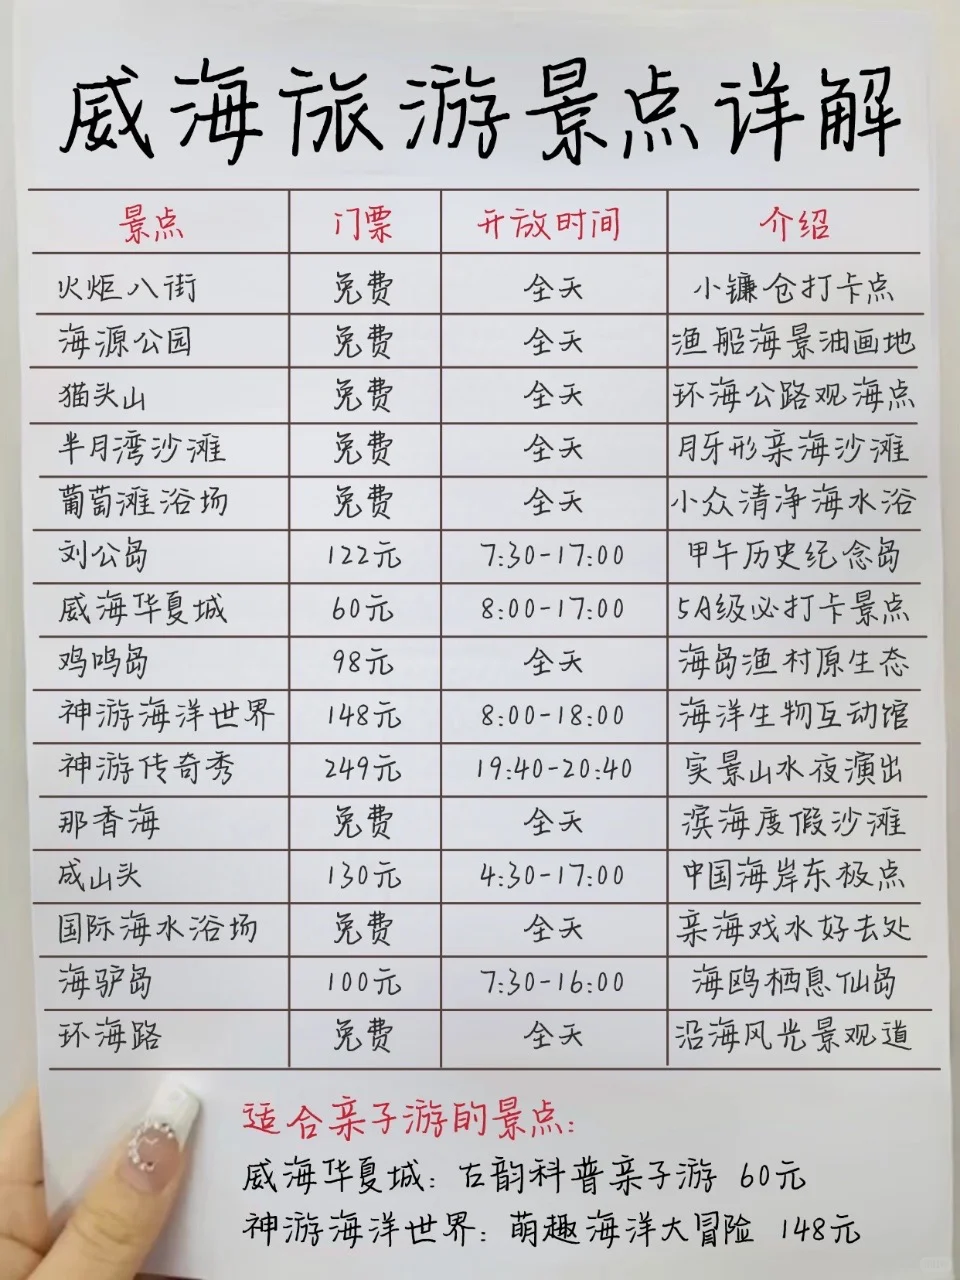 威海旅游景点详解
景点 门票 开放时间 介绍
火炬八街 免费 全天 小镰仓打卡点
海源公园 免费 全天 渔船海景油画地
猫头山 免费 全天 环海公路观海点
半月湾沙滩 免费 全天 月牙形亲海沙滩
葡萄滩浴场 免费 全天 小众清净海水浴
刘公岛 122元 7:30-17:00 甲午历史纪念岛
威海华夏城 60元 8:00-17:00 5A级必打卡景点
鸡鸣岛 98元 全天 海岛渔村原生态
神游海洋世界 148元 8:00-18:00 海洋生物互动馆
神游传奇秀 249元 19:40-20:40 实景山水夜演出
那香海 免费 全天 滨海度假沙滩
成山头 130元 4:30-17:00 中国海岸东极点
国际海水浴场 免费 全天 亲海戏水好去处
海驴岛 100元 7:30-16:00 海鸥栖息仙岛
环海路 免费 全天 沿海风光景观道
适合亲子游的景点:
威海华夏城: 古韵科普亲子游 60元
神游海洋世界: 萌趣海洋大冒险 148元